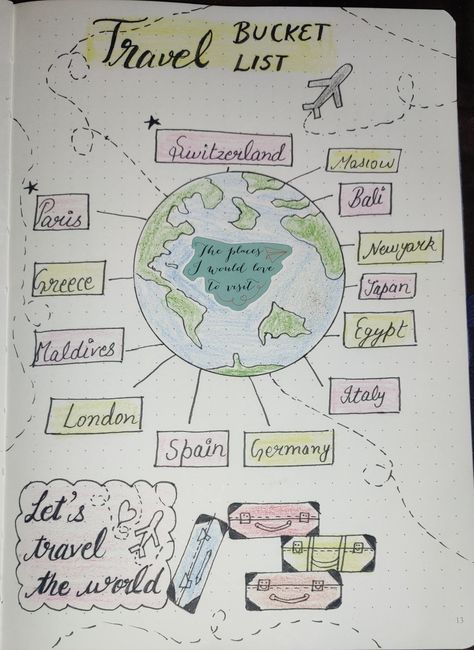 Travel BUCKET
LIST
Switzerland
Moscow
Paris
Bali
The places
I would love
to visit
Newyark
Greece
Japan
Egypt
Maldives
Italy
London
Spain
Germany
Let's
travel
the world
13